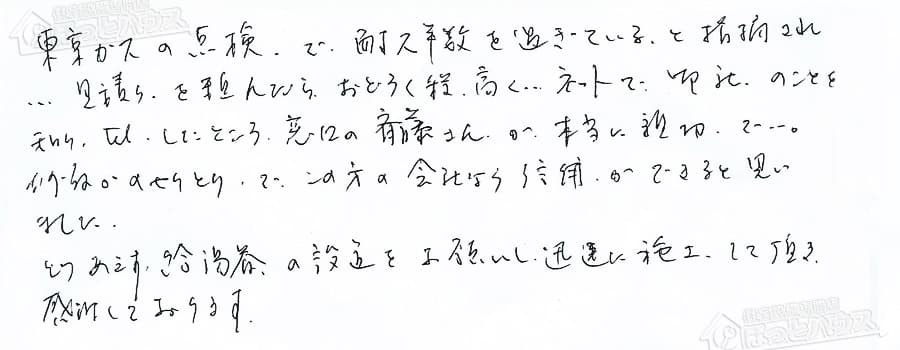 東京ガスの点検で、耐久年数を過ぎていると指摘され
…見積りを頼んだら、おどろく程、高く…ネットで御社のことを
知り、TELしたところ、窓口の斉藤さんが本当に親切で…。
何回かのやりとりで、この方の会社なら信頼ができると思い
ました。
とりあえず、給湯器の設置をお願いし、迅速に施工して頂き
感謝しております。
ほっとハウス
ほっとハウス